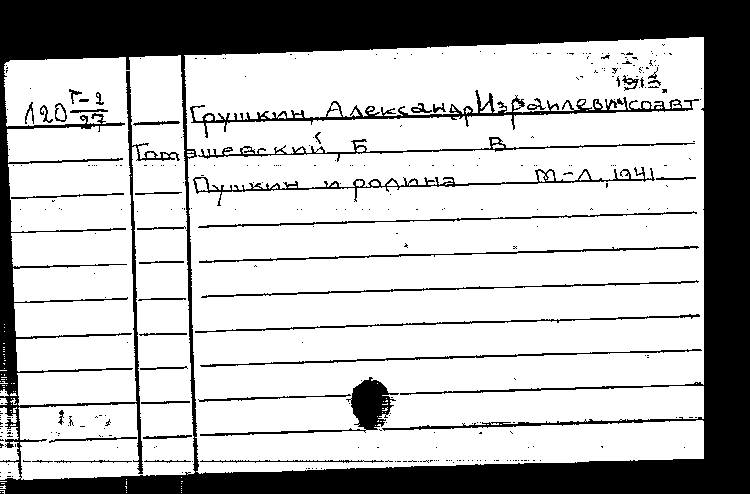 1913.
120 Г-2/27 Грушкин, Александр Израилевич соавт.
Томашевский, Б В
Пушкин и родина М-Л., 1941.